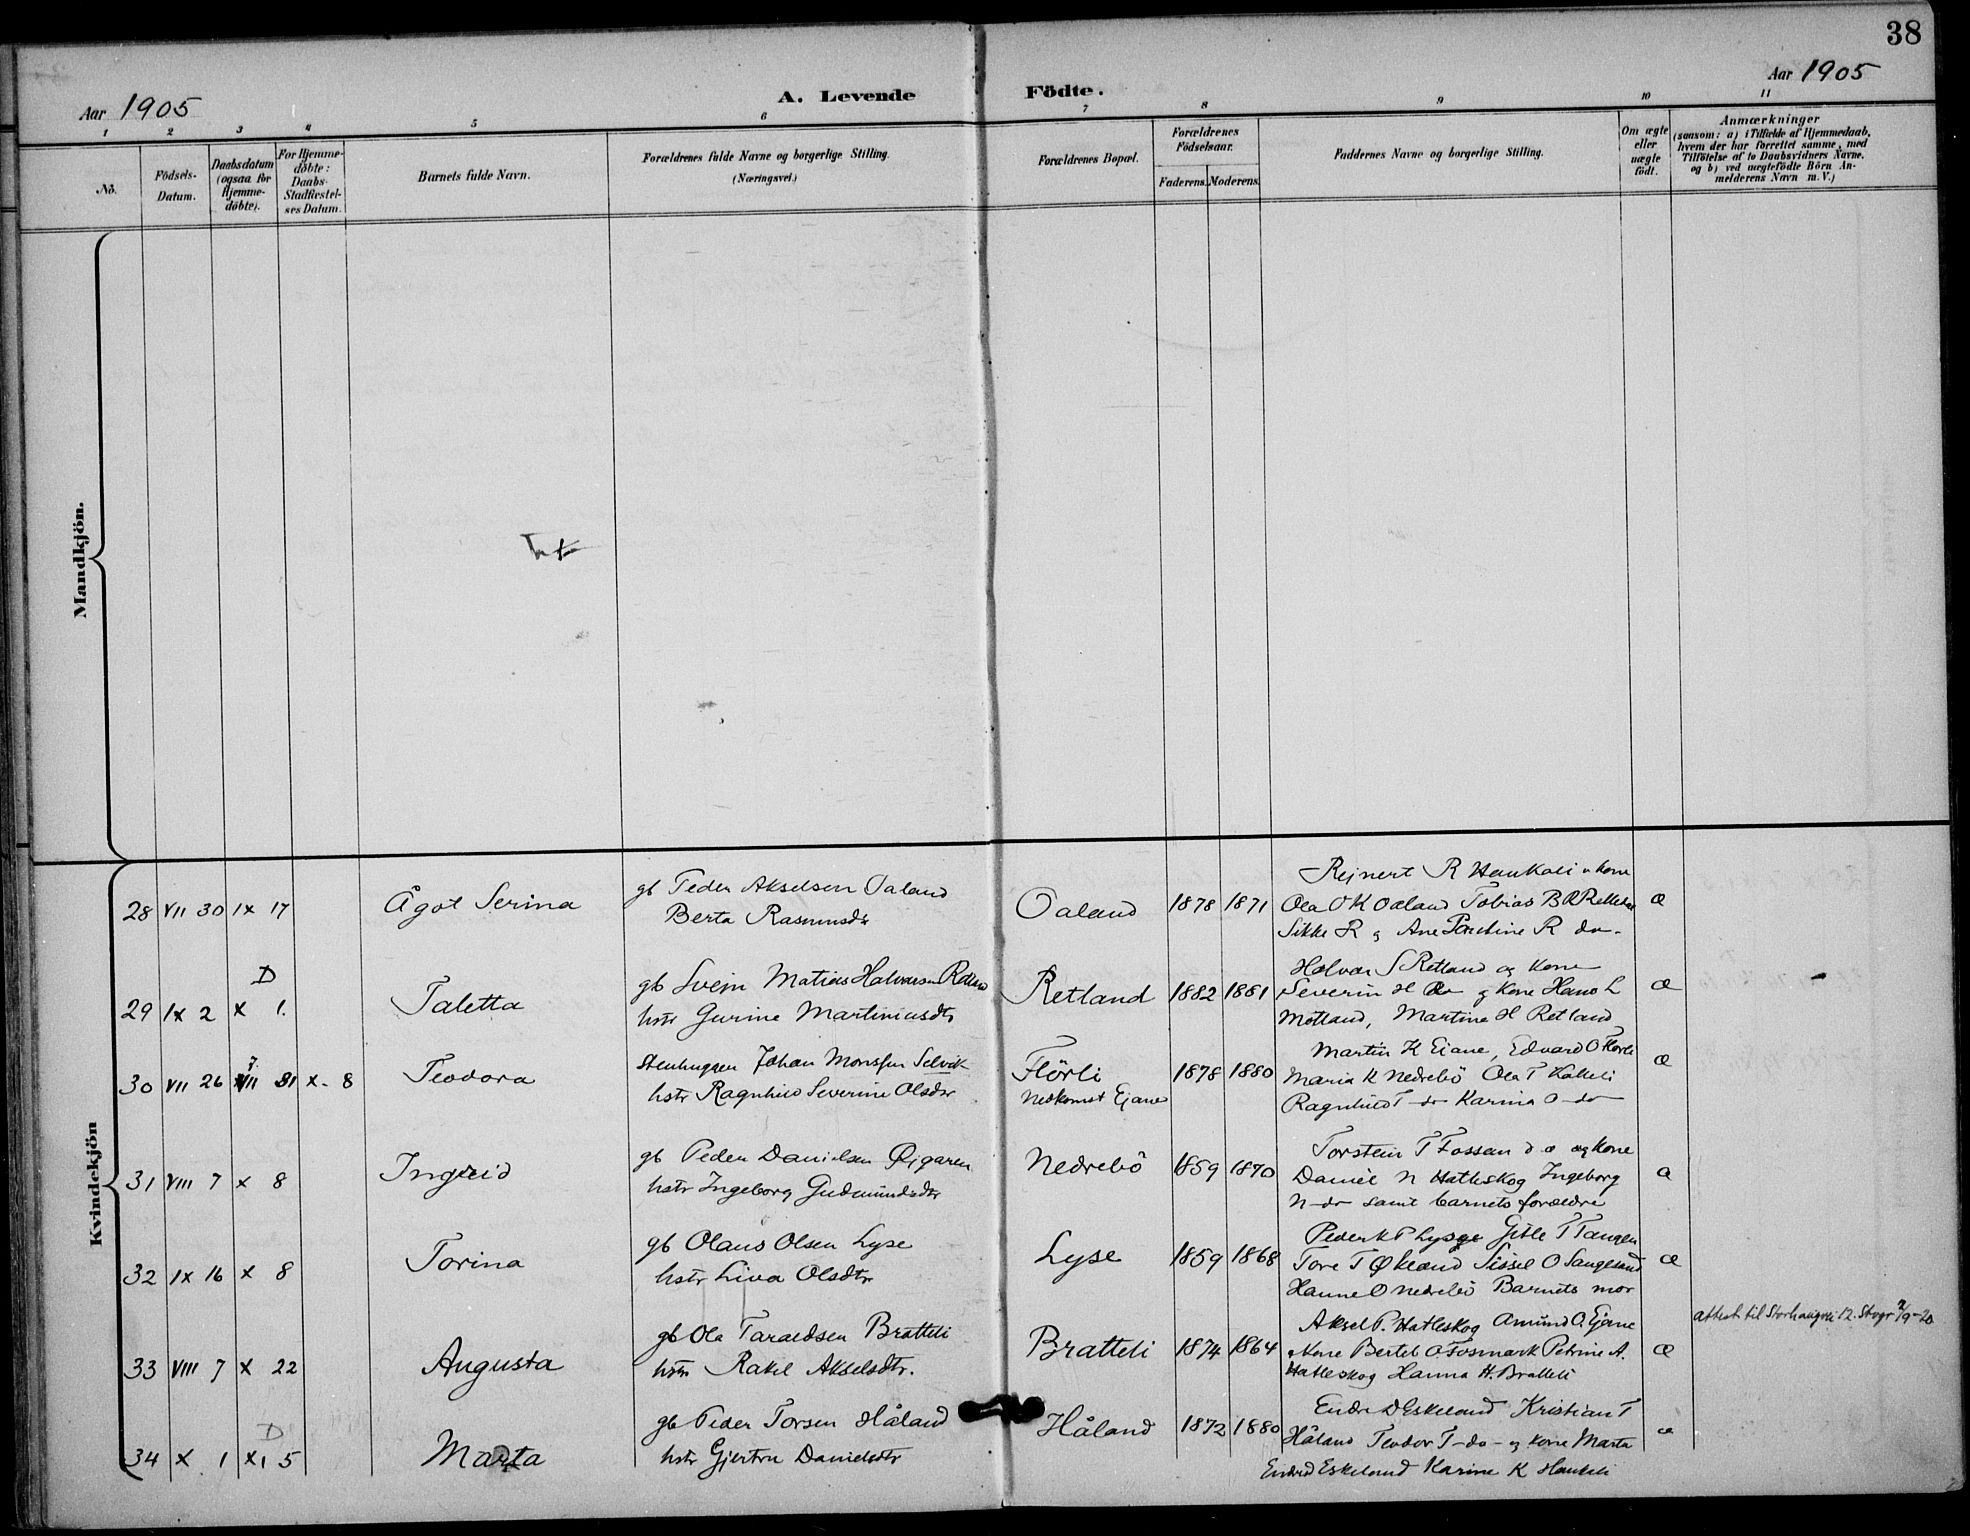 38
Aar 1905
A. Levende Födte.
Aar 1905
1 2 3 4 5 6 7 8 9 10 11
No.
Födsels-Datum.
Daabsdatum (ogsaa for Hjemme-döbte).
For Hjemme-döbte: Daabs-Stadfæstel-ses Datum.
Barnets fulde Navn.
Forældrenes fulde Navne og borgerlige Stilling.
(Næringsvei.)
Forældrenes Bopæl.
Forældrenes Födselsaar.
Faderens. Moderens.
Faddernes Navne og borgerlige Stilling.
Om ægte eller uægte födt.
Anmærkninger
(saasom: a) i Tilfælde af Hjemmedaab,
hvem der har forrettet samme, med
Tilföielse af to Daabsvidners Navne,
og b) ved uægtefödte Börn An-
melderens Navn m. V.)
Mandkjön.
Kvindekjön
28 VII 30 IX 17 Ågot Serina
gb Peder Akselsen Oaland
Berta Rasmusdr
Oaland 1878 1871
Reinert R Haukali u kone
Ola O K Oaland Tobias B R
Sikke R g Ane R do-
æ
D
29 IX 2 X 1. Taletta
gb Svein Matias Halvorsen Retland
hstr Gurine Martiniusdtr
Retland 1882 1881
Halvor S Retland og kone
Severin H do g kone Hans L
Motland, Martine H Retland
æ
30 VII 26 31 X - 8 Teodora
Stenhuggen Johan Monsen Selvik
hstr Ragnhild Severine Olsdtr
Flörli
Nedkomst Ejane
1878 1880
Martin K Eiane, Edvard O Flörli
Maria K Nedrebö Ola T Kalleli
Ragnhild T - do Karina O - do
æ
31 VIII 7 X 8 Ingeid
gb Peder Danielsen Øigaren
hstr Ingeborg Gudmundsdtr
Nedrebö 1859 1870
Torstein T Fossan d æ og kone
Daniel N Hatleskog Ingeborg
N - do samt barnets forældre
æ
32 IX 16 X 8 Torina
gb Olaus Olsen Lyse
hstr Liva Olsdtr
Lyse 1859 1868
Peder K P Lyse Gitle T Tangen
Tore T Økland Sissel O Sangesand
Hanne O Nedrebö Barnets mor
æ
33 VIII 7 X 22 Augusta
gb Ola Taraldsen Bratteli
hstr Rakel Akselsdtr.
Bratteli 1874 1864
Aksel P. Hatleskog Amund O. Ejane
kone Bertel O Fosmark Petrine A.
Hatleskog Hanna H. Bratteli
æ
attest til Storhaugvei 12. Stvgr 2/9-20
D
34 X 1 XI 5 Marta
gb Peder Torsen Håland
hstr Gjertru Danielsdtr
Håland 1872 1880
Endre D Eskeland Kristian T
Håland Teodor T - do - g kone Marta
Endred Eskeland Karine K Haukali
æ